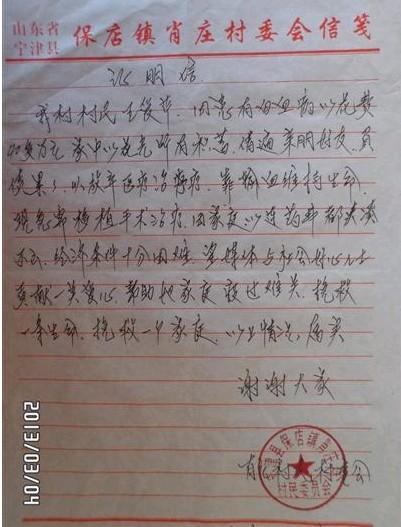 山东省
宁津县 保店镇肖庄村委会信笺
证明信
我村村民王俊萍,因患有白血病以花费
加变为主 家中以花光所有积蓄,借遍亲朋好友,负
债累々以放弃医疗治疗,靠输血维持生命,
现急需移植手术治疗,因家庭以连药费都
不了,经济条件十分困难,望媒体与社会好心人士
贡献一类爱心,帮助她家庭 度过难关,挽救
一条生命,挽救一个家庭,以上情况,属实
谢谢大家
肖庄村
宁津县保店镇肖庄村
村民委员会
2013/03/04